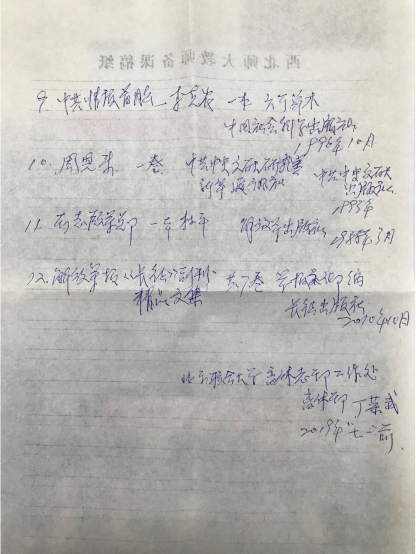 西北师大教师备课稿纸
9. 中共情报首脑—李克农 一本
中国社会科学出版社
1996年10月
10. 周恩来 一卷 中共中央文献研究室 中共中央文献
出版社
1993年
11. 一本 杜平 解放军出版社
12. 解放军报《长征》副刊 共7卷 编
精品文集 长征出版社
2010年10月
北京联合大学离休老干工作处
离休干 丁荣武
2019年"七一"前